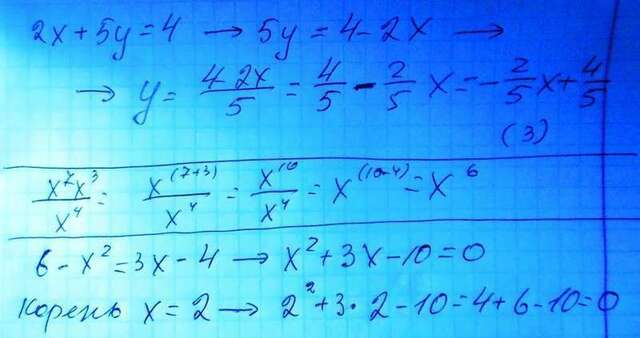 2x+5y=4 → 5y=4-2x →
→ y= \frac{4 2x}{5} = \frac{4}{5} - \frac{2}{5} x = -\frac{2}{5}x+\frac{4}{5}
(3)
\frac{x^7x^3}{x^4} = \frac{x^{(7+3)}}{x^4} = \frac{x^{10}}{x^4} = x^{(10-4)} = x^6
6-x²=3x-4 → x²+3x-10=0
Корень x=2 → 2²+3·2-10=4+6-10=0